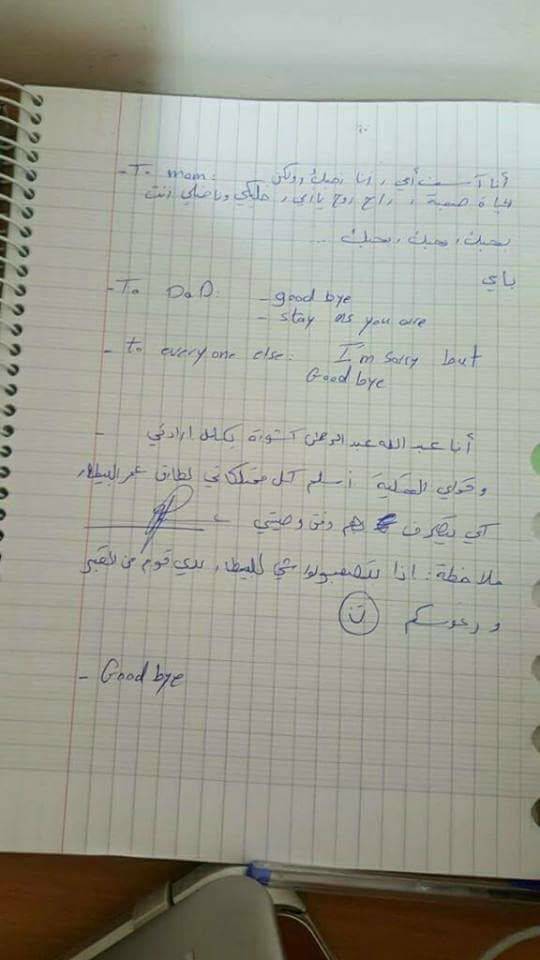 - To mom: أنا آسف أمي، أنا بحبك ولكن
الحياة صعبة، راح روح يا امي، خليكي وما ضلي انت
بحبك، بحبك، بحبك ...
باي
- To DaD: - good bye
- stay as you are
- to everyone else: I'm sorry but
Good bye
- أنا عبد الله عبد الرحمن بكامل ارادتي
وقواي العقلية أسلم كل ممتلكاتي عمر البيطار
كي يتصرف هم وفق وصيتي
ملاحظة: اذا شي للبيطار، بدي قوم من القبر
و رعوسكم
- Good bye